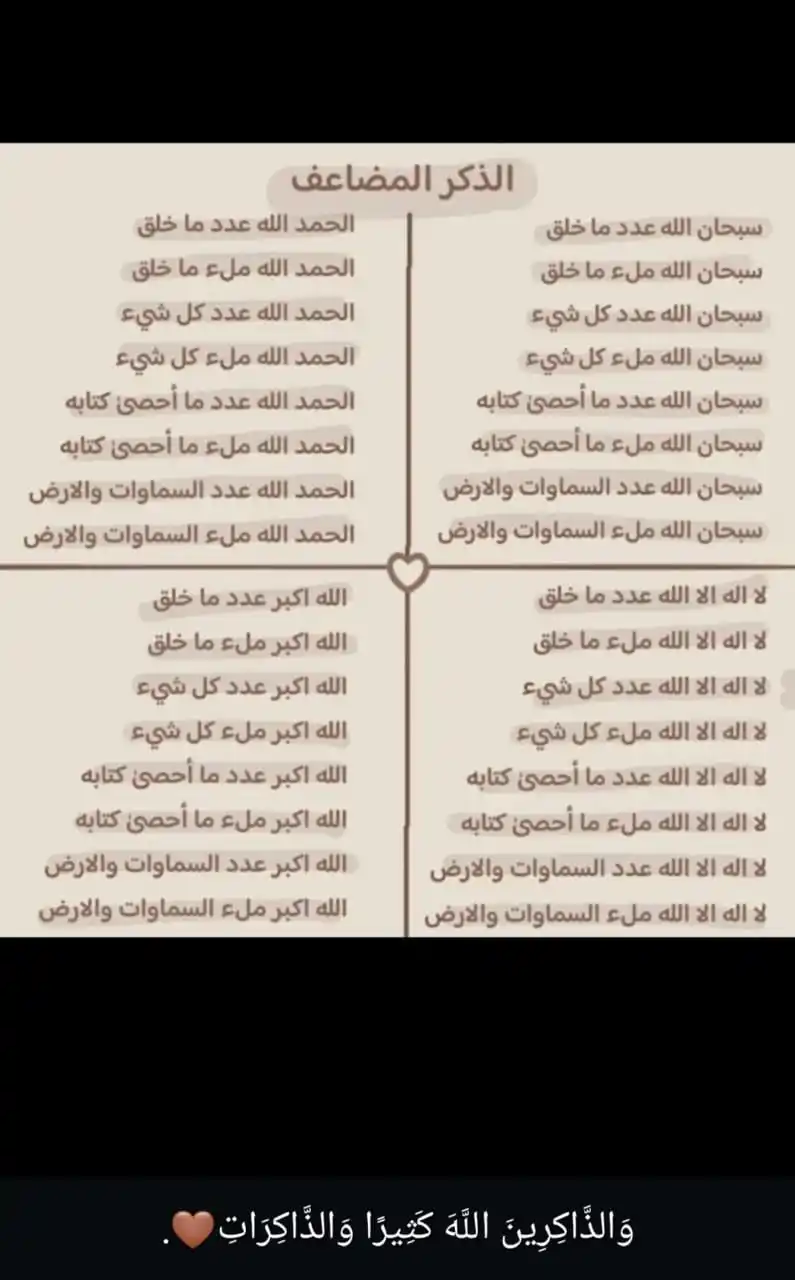 الذكر المضاعف
سبحان الله عدد ما خلق
سبحان الله ملء ما خلق
سبحان الله عدد كل شيء
سبحان الله ملء كل شيء
سبحان الله عدد ما أحصىٰ كتابه
سبحان الله ملء ما أحصىٰ كتابه
سبحان الله عدد السماوات والارض
سبحان الله ملء السماوات والارض
الحمد الله عدد ما خلق
الحمد الله ملء ما خلق
الحمد الله عدد كل شيء
الحمد الله ملء كل شيء
الحمد الله عدد ما أحصىٰ كتابه
الحمد الله ملء ما أحصىٰ كتابه
الحمد الله عدد السماوات والارض
الحمد الله ملء السماوات والارض
لا اله الا الله عدد ما خلق
لا اله الا الله ملء ما خلق
لا اله الا الله عدد كل شيء
لا اله الا الله ملء كل شيء
لا اله الا الله عدد ما أحصىٰ كتابه
لا اله الا الله ملء ما أحصىٰ كتابه
لا اله الا الله عدد السماوات والارض
لا اله الا الله ملء السماوات والارض
الله اكبر عدد ما خلق
الله اكبر ملء ما خلق
الله اكبر عدد كل شيء
الله اكبر ملء كل شيء
الله اكبر عدد ما أحصىٰ كتابه
الله اكبر ملء ما أحصىٰ كتابه
الله اكبر عدد السماوات والارض
الله اكبر ملء السماوات والارض
وَالذَّاكِرِينَ اللَّهَ كَثِيرًا وَالذَّاكِرَاتِ🤎.